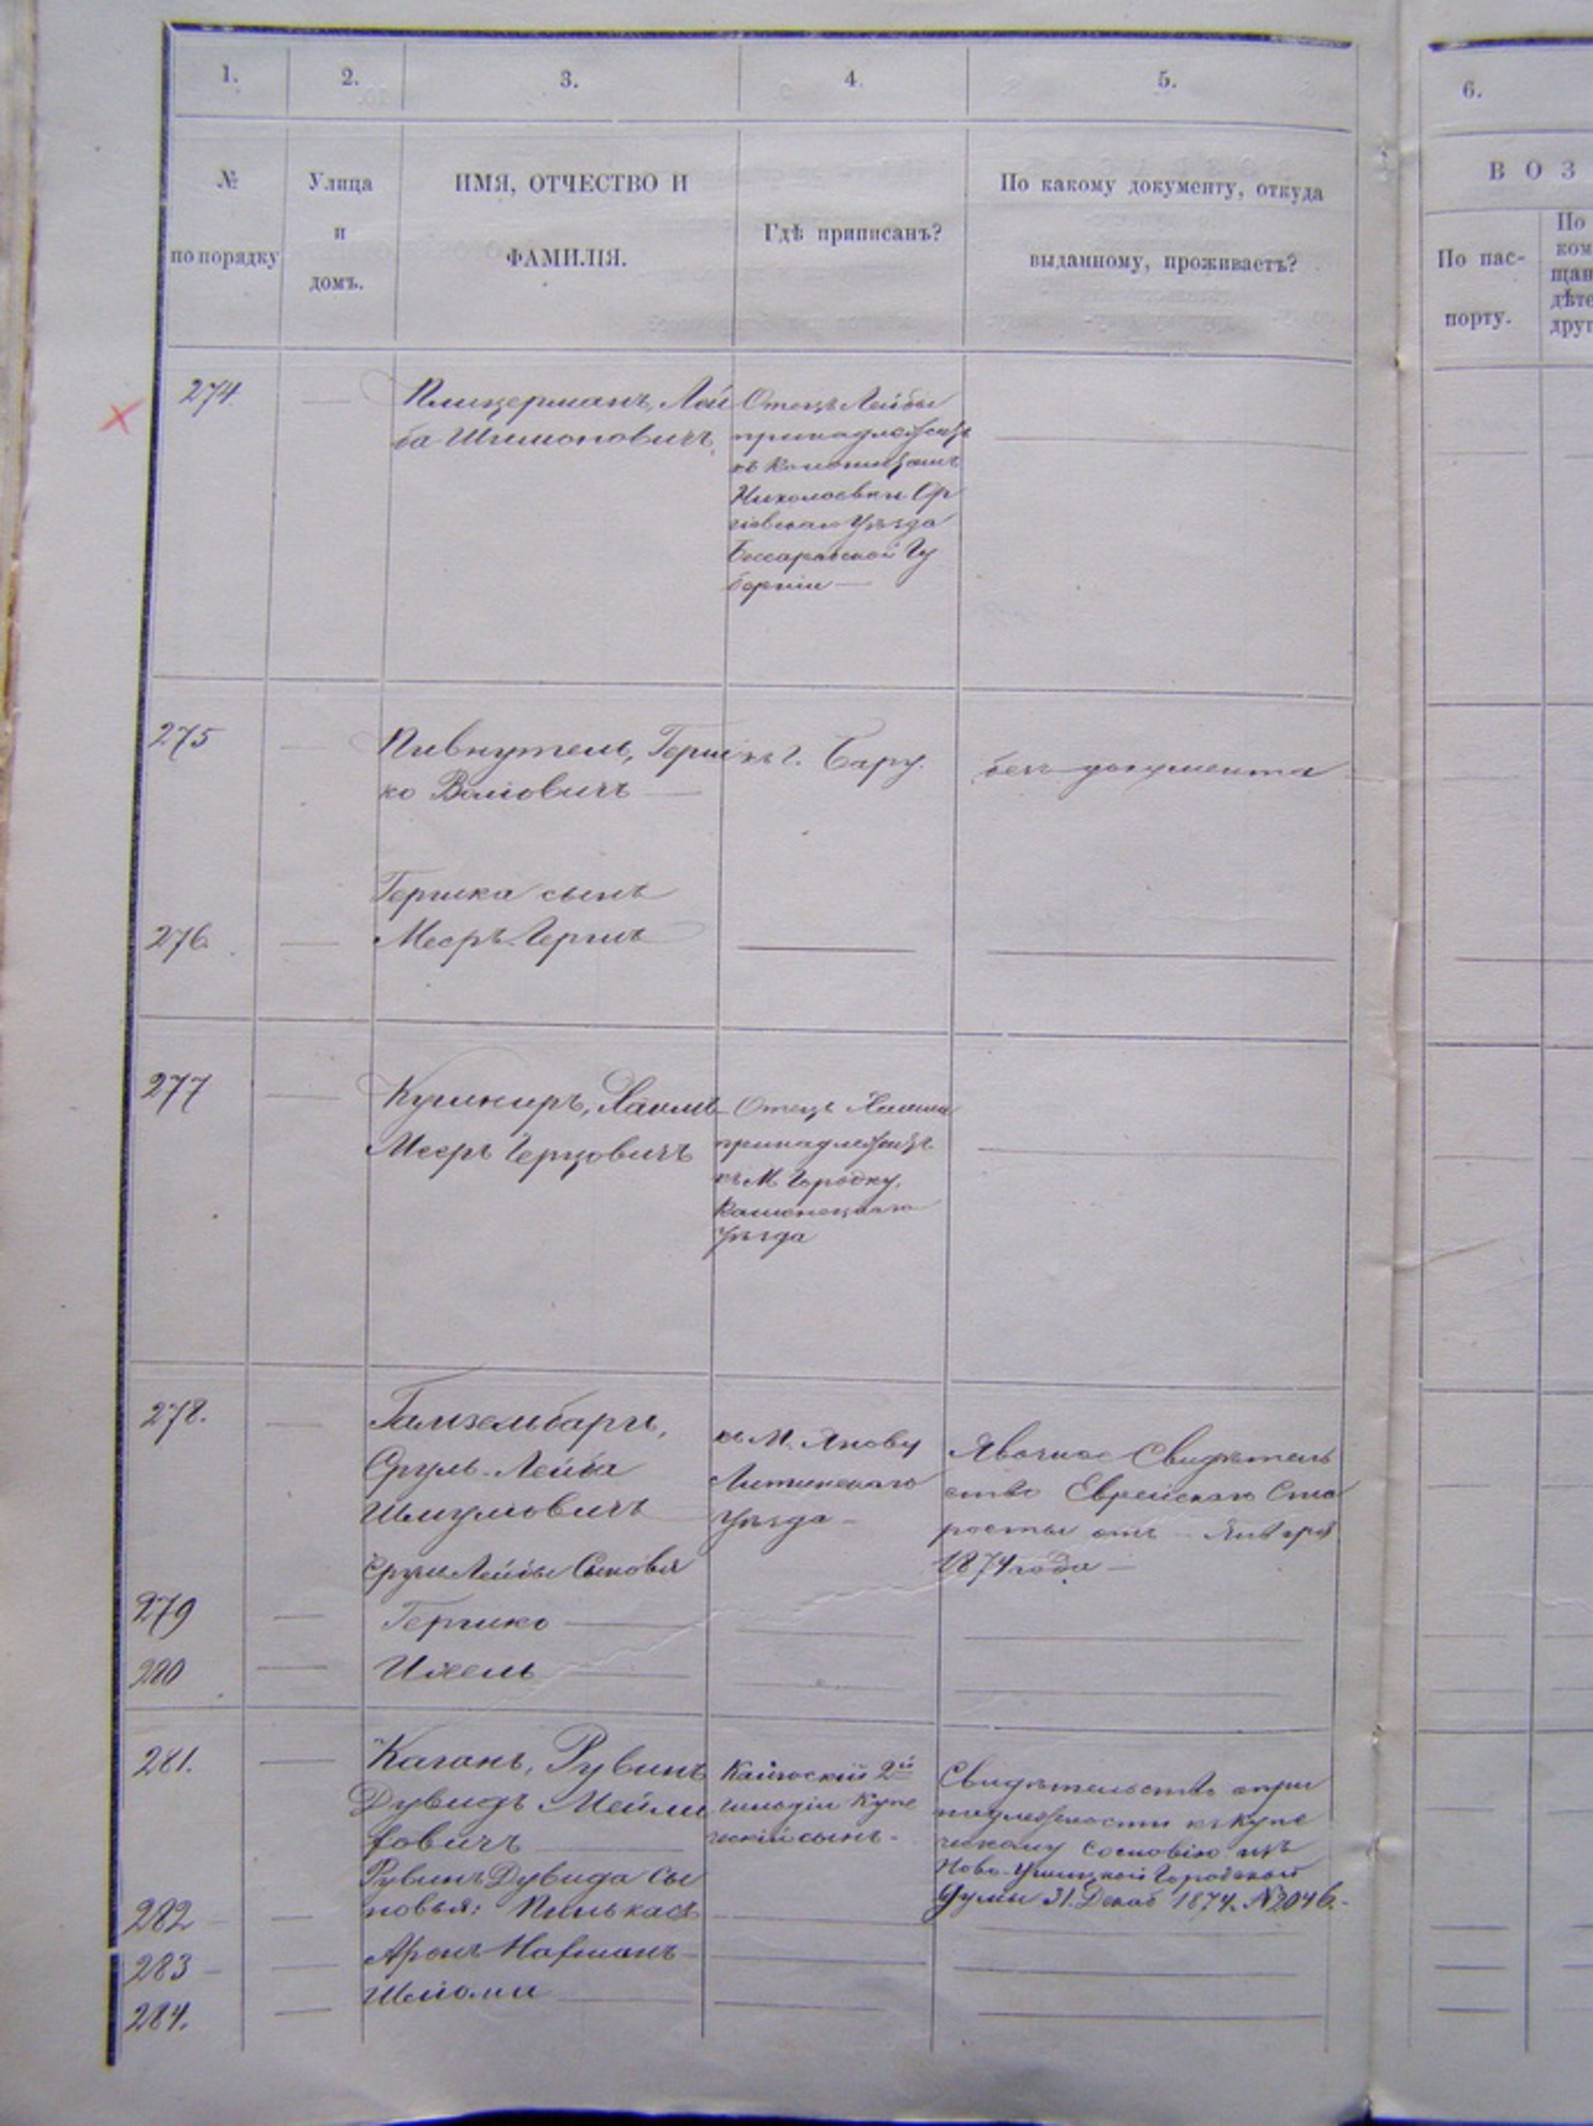 1.
2.
3.
4.
5.
6.
№
по порядку
Улица
и
домъ.
ИМЯ, ОТЧЕСТВО И
ФАМИЛІЯ.
Гдѣ приписанъ?
По какому документу, откуда
выданному, проживаетъ?
ВОЗ
По пас-
порту.
По
ком
щан
дѣте
друг
274
Плицерманъ, Лей
ба Шимоновичъ
Отецъ Лейбы
принадлежитъ
къ
Николаевки Ор
гѣевскаго Уѣзда
Бессарабской Гу
берніи
275
Пивкутель, Герш
ко Волѣовичъ
къ г. Бару.
безъ документа
Гершка сынъ
276
Мееръ-Гершъ
277
Кушниръ, Хаимъ
Мееръ Герцовичъ
Отецъ Хаима
принадлежитъ
къ М. Городку,
Каменецкаго
Уѣзда
278.
Гамзельбаргъ,
Сруль-Лейба
Шмулѣовичъ
къ М. Янову
Литинскаго
Уѣзда
Явочное Свидѣтель
ство Еврейскаго Ста
росты отъ Января
1874 года
Сруль Лейбы Сыновья
279
Гершко
280
Ихель
281.
Каганъ, Рувинъ
Дувидъ Мейли
ховичъ
2й
гильдіи Купе
ческій сынъ.
Свидѣтельство о при
надлежности къ купе
ческому сословію изъ
Ново-Ушицкой Городской
Думы 31. Декаб 1874. №2046.
Рувинъ Дувида Сы
новья: Пинькасъ
282
283
Аронъ Нафманъ
284.
Шліома